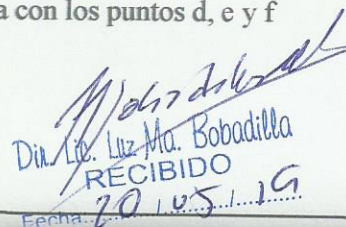 a con los puntos d, e y f
Dir. Lic. Luz Ma. Bobadilla
RECIBIDO
Fecha: 20 / 05 / 19